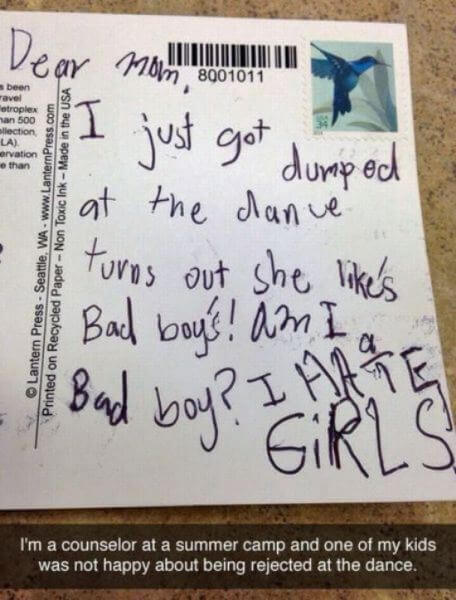 Dear mom,
8001011
s been
ravel
etroplex
an 500
llection,
LA).
ervation
e than
© Lantern Press - Seattle, WA - www.LanternPress.com
Printed on Recycled Paper – Non Toxic Ink – Made in the USA
I just got
dumped
at the dance
turns out she like's
Bad boy's! am I
a
Bad boy? I HATE
GiRLS
I'm a counselor at a summer camp and one of my kids
was not happy about being rejected at the dance.